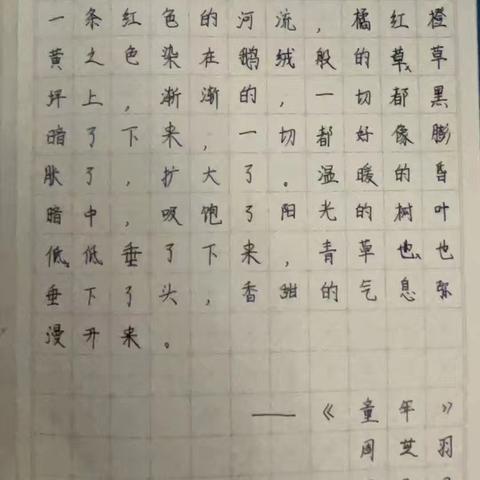 一条红色的河流，橘红橙
黄之色染在鹅绒般的草草
坪上，渐渐的，一切都黑
暗了下来，一切都好像膨
胀了，扩大了。温暖的昏
暗中，吸饱了阳光的树叶
低低垂了下来，青草也也
垂下了头，香甜的气息弥
漫开来。
——《童年》
周芝羽